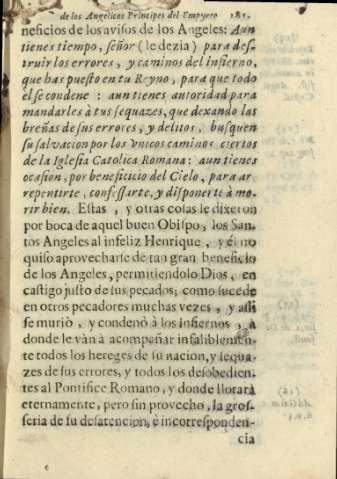 de los Angelicos Principes del Empyreo 181.
neficios de los avisos de los Angeles: Aun
tienes tiempo, señor (le dezia) para des-
truir los errores, y caminos del infierno,
que has puesto en tu Reyno, para que todo
el se condene : aun tienes autoridad para
mandarles à tus sequazes, que dexando las
breñas de sus errores, y delitos, busquen
su salvacion por los vnicos caminos ciertos
de la Iglesia Catolica Romana : aun tienes
ocasion, por beneficio del Cielo, para ar
repentirte, confessarte, y disponerte à mo-
rir bien. Estas , y otras cosas le dixeron
por boca de aquel buen Obispo, los San-
tos Angeles al infeliz Henrique , y él no
quiso aprovecharse de tan gran beneficio
de los Angeles, permitiendolo Dios, en
castigo justo de sus pecados; como sucede
en otros pecadores muchas vezes , y assi
se murió , y condenò à los Infiernos , à
donde le vàn à acompañar infaliblemen-
te todos los hereges de su nacion, y sequa-
zes de sus errores, y todos los desobedien-
tes al Pontifice Romano, y donde llorarà
eternamente, pero sin provecho, la gros-
seria de su desatencion, è incorresponden-
cia